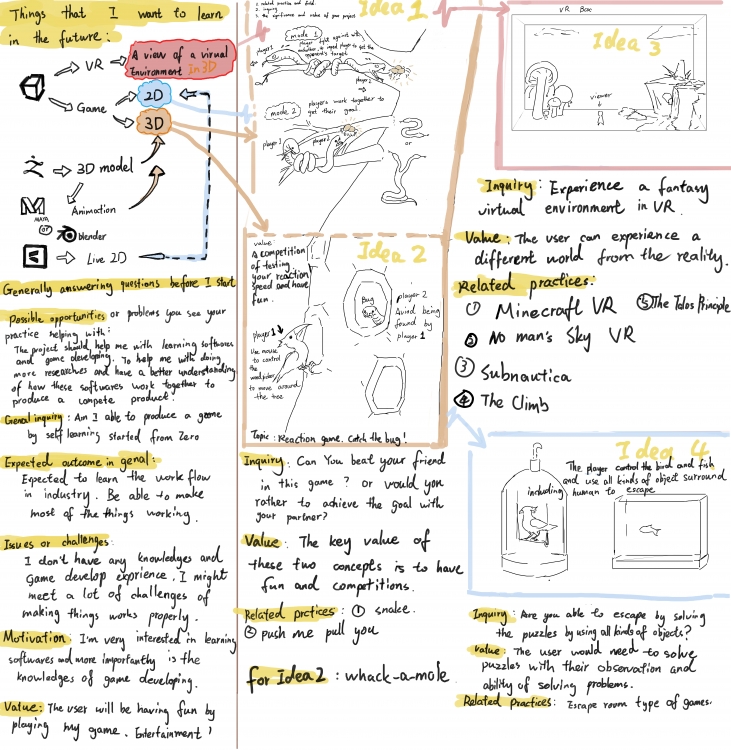 Things that I want to learn
in the future:
VR
A view of a virual
Environment In 3D
Game
2D
3D
3D model
Animation
MAYA
or
blender
Live 2D
Generally answering questions before I start
Possible opportunities or problems you see your
practice helping with:
The project should help me with learning softwares
and game developing. To help me with doing
more researches and have a better understanding
of how these softwares work together to
produce a compete product.
Genal inquiry: Am I able to produce a game
by self learning started from Zero
Expected outcome in genal:
Expected to learn the work flow
in industry. Be able to make
most of the things working.
Issues or challenges:
I don't have any knowledges and
Game develop exprience. I might
meet a lot of challenges of
making things works properly.
Motivation: I'm very interested in learning
softwares and more importantly is the
knowledges of game developing.
Value: The user will be having fun by
playing my game. Entertainment!
Idea 1
2. inquiry
3. the significance and value of your project
mode 1
player 1
player 2
mode 2
players work together to
get their goal.
player 1
player 2
or
Idea 2
value:
A competition
of testing
your reaction
speed and have
fun.
Bug
player 2
Aviod being
found by
player 1
player 1
Use mouse
to control
the woodpecker
to move around
the tree
Topic: Reaction game. Catch the bug!
Inquiry: Can You beat your friend
in this game? or would you
rather to achieve the goal with
your partner?
Value: The key value of
these two concepts is to have
fun and competitions.
Related prctices: ① snake.
② push me pull you
for Idea 2: whack-a-mole
VR Box
Idea 3
viewer
Inquiry: Experience a fantasy
virtual environment in VR.
Value: The user can experience a
different world from the reality.
Related practices:
① Minecraft VR ⑤ The Talos Principle
② No man's Sky VR
③ Subnautica
④ The Climb
Idea 4
The player control the bird and fish
and use all kinds of object surround
including human to escape
Inquiry: Are you able to escape by solving
the puzzles by using all kinds of objects?
Value: The user would need to solve
puzzles with their observation and
ability of solving problems.
Related Practices: Escape room type of games.